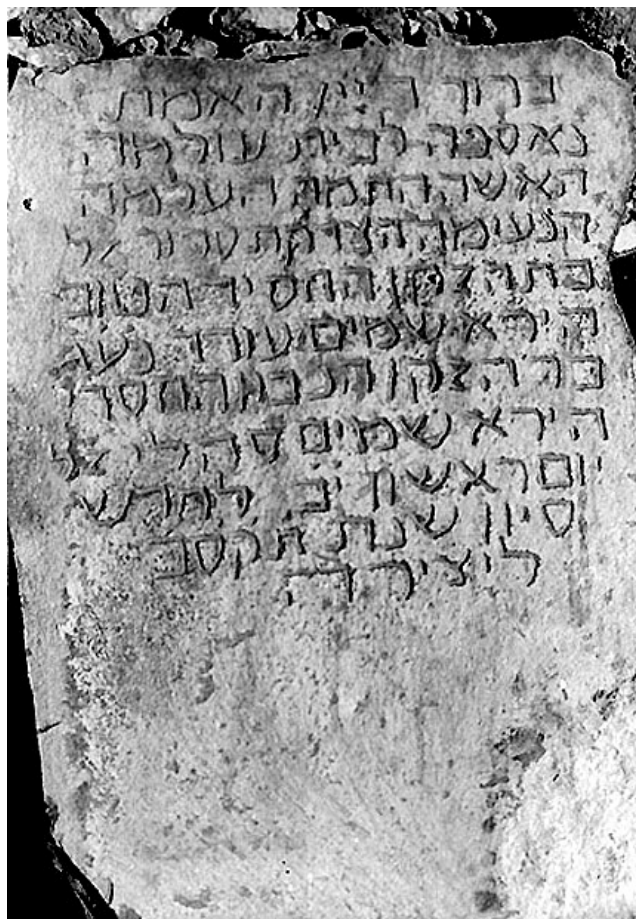 ברוך דיין האמת
נאספה לבית עולמה
האשה התמה העלמה
הנעימה הצדקת סרור
בת הזקן החסיד הטוב
הירא שמים עודד
בר הזקן הנבון החסדי
הירא שמים
יום ראשון יב לחדש
סיון שנת תקסב
ליצירה